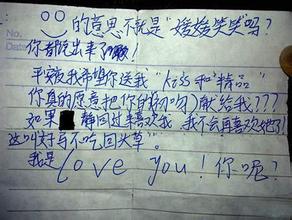 No.
的意思不就是"嘻嘻笑笑"吗?
你都说出来了
平安夜我希望你送我"Kiss和精品"
你真的愿意把你的初吻献给我???
如果 静回过半喜欢我 我不会再喜欢她了!
这叫好马不吃回头草。
我是Love you! 你呢?